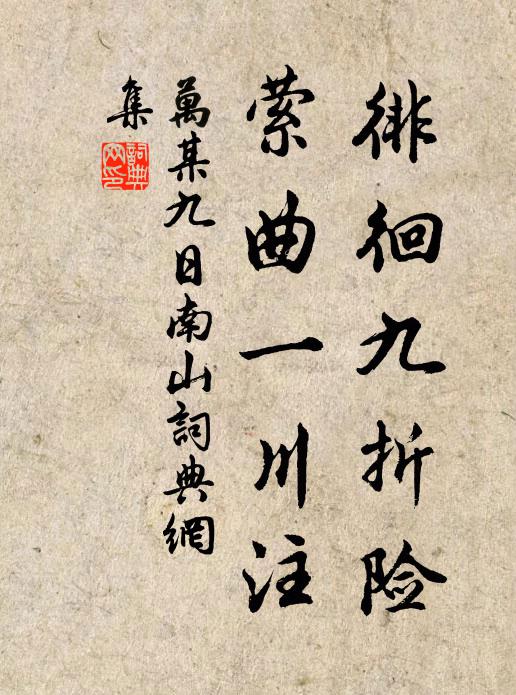 徘徊九折险
萦曲一川注
萬某九日南山詞典網
集
詞典
网印